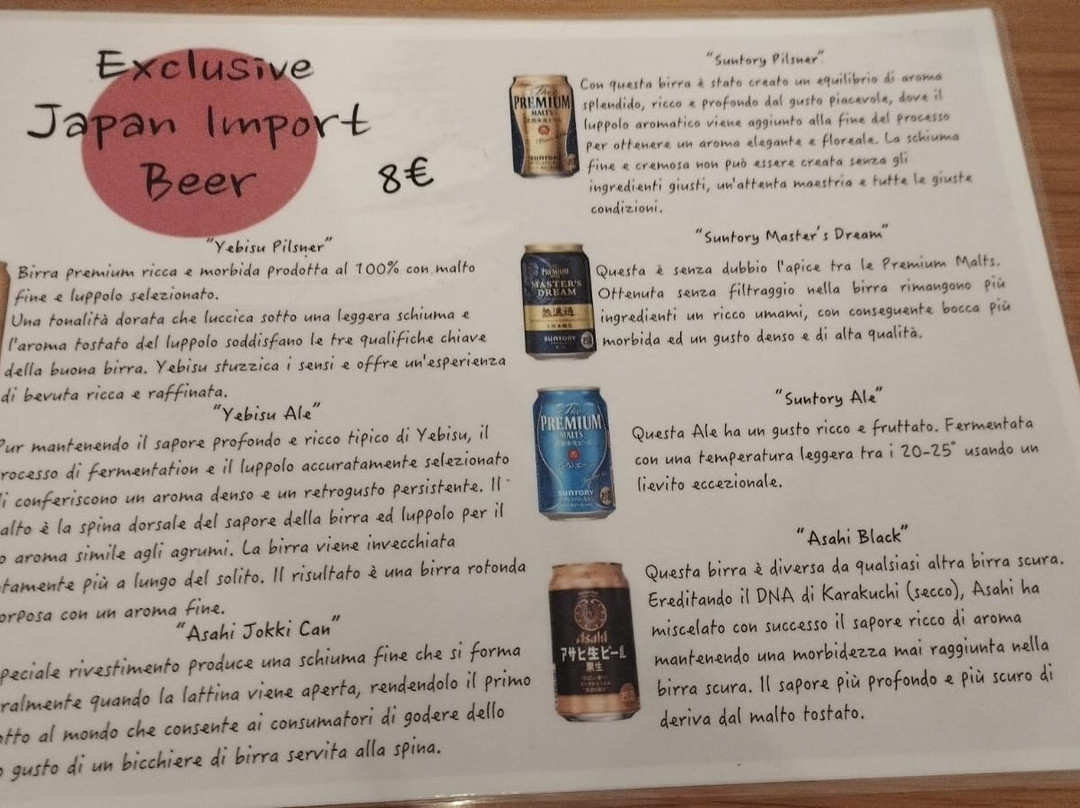 Exclusive
Japan Import
Beer
8€
"Yebisu Pilsner"
Birra premium ricca e morbida prodotta al 100% con malto
fine e luppolo selezionato.
Una tonalità dorata che luccica sotto una leggera schiuma e
l'aroma tostato del luppolo soddisfano le tre qualifiche chiave
della buona birra. Yebisu stuzzica i sensi e offre un'esperienza
di bevuta ricca e raffinata.
"Yebisu Ale"
Pur mantenendo il sapore profondo e ricco tipico di Yebisu, il
rocesso di fermentation e il luppolo accuratamente selezionato
li conferiscono un aroma denso e un retrogusto persistente. Il
alto è la spina dorsale del sapore della birra ed luppolo per il
o aroma simile agli agrumi. La birra viene invecchiata
tamente più a lungo del solito. Il risultato è una birra rotonda
orposa con un aroma fine.
"Asahi Jokki Can"
peciale rivestimento produce una schiuma fine che si forma
ralmente quando la lattina viene aperta, rendendolo il primo
otto al mondo che consente ai consumatori di godere dello
o gusto di un bicchiere di birra servita alla spina.
"Suntory Pilsner"
Con questa birra è stato creato un equilibrio di aroma
splendido, ricco e profondo dal gusto piacevole, dove il
luppolo aromatico viene aggiunto alla fine del processo
per ottenere un aroma elegante e floreale. La schiuma
fine e cremosa non può essere creata senza gli
ingredienti giusti, un'attenta maestria e tutte le giuste
condizioni.
The
PREMIUM
MALT'S
SUNTORY
"Suntory Master's Dream"
Questa è senza dubbio l'apice tra le Premium Malts.
Ottenuta senza filtraggio nella birra rimangono più
ingredienti un ricco umami, con conseguente bocca più
morbida ed un gusto denso e di alta qualità.
PREMIUM
MASTER'S
DREAM
無濾過
SUNTORY
"Suntory Ale"
Questa Ale ha un gusto ricco e fruttato. Fermentata
con una temperatura leggera tra i 20-25° usando un
lievito eccezionale.
The
PREMIUM
MALT'S
SUNTORY
"Asahi Black"
Questa birra è diversa da qualsiasi altra birra scura.
Ereditando il DNA di Karakuchi (secco), Asahi ha
miscelato con successo il sapore ricco di aroma
mantenendo una morbidezza mai raggiunta nella
birra scura. Il sapore più profondo e più scuro di
deriva dal malto tostato.
Asahi
アサヒ生ビール
黒生